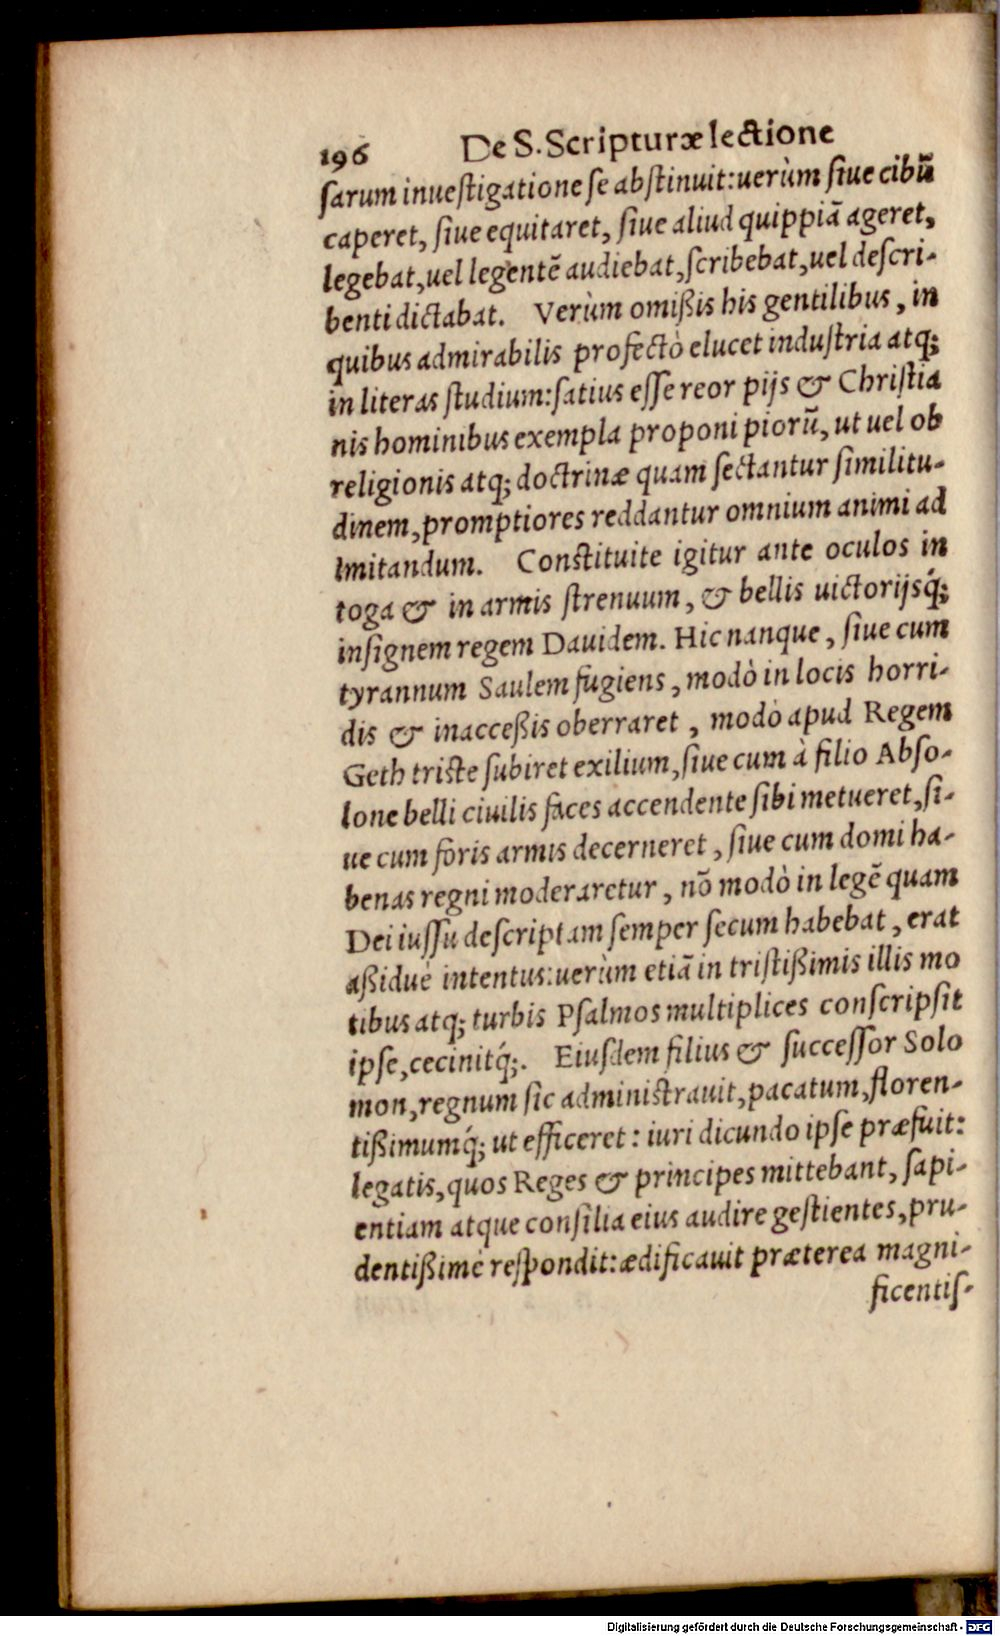 196 De S. Scripturæ lectione
ſarum inueſtigatione ſe abſtinuit: uerùm ſiue cibū
caperet, ſiue equitaret, ſiue aliud quippiā ageret,
legebat, uel legentē audiebat, ſcribebat, uel deſcri-
benti dictabat. Verùm omißis his gentilibus, in
quibus admirabilis profectò elucet induſtria atq;
in literas ſtudium: ſatius eſſe reor pijs & Chriſtia
nis hominibus exempla proponi piorū, ut uel ob
religionis atq; doctrinæ quam ſectantur ſimilitu-
dinem, promptiores reddantur omnium animi ad
imitandum. Conſtituite igitur ante oculos in
toga & in armis ſtrenuum, & bellis uictorijsq́;
inſignem regem Dauidem. Hic nanque, ſiue cum
tyrannum Saulem fugiens, modò in locis horri-
dis & inacceßis oberraret, modò apud Regem
Geth triſte ſubiret exilium, ſiue cum à filio Abſo-
lone belli ciuilis faces accendente ſibi metueret, ſi-
ue cum foris armis decerneret, ſiue cum domi ha-
benas regni moderaretur, nō modò in legē quam
Dei iuſſu deſcriptam ſemper ſecum habebat, erat
aßiduè intentus: uerùm etiā in triſtißimis illis mo
tibus atq; turbis Pſalmos multiplices conſcripſit
ipſe, cecinitq́;. Eiuſdem filius & ſucceſſor Solo
mon, regnum ſic adminiſtrauit, pacatum, floren-
tißimumq́; ut efficeret: iuri dicundo ipſe præfuit:
legatis, quos Reges & principes mittebant, ſapi-
entiam atque conſilia eius audire geſtientes, pru-
dentißimè reſpondit: ædificauit præterea magni-
ficentiſ-
Digitalisierung gefördert durch die Deutsche Forschungsgemeinschaft - DFG